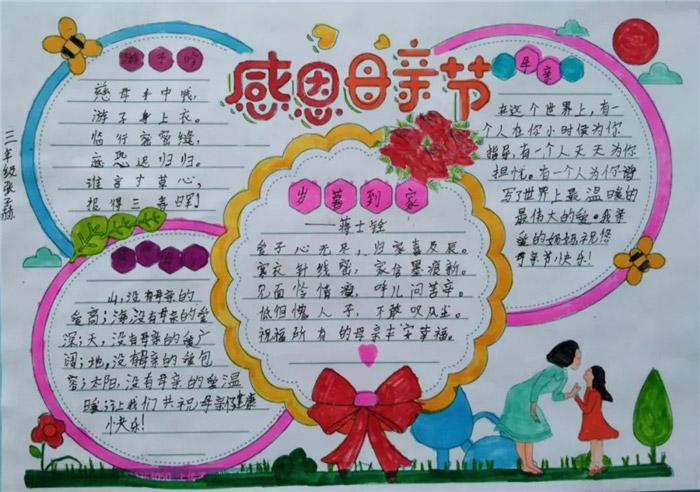 感恩母亲节
三年级张子赫
游子吟
慈母手中线,
游子身上衣。
临行密密缝,
意恐迟归归。
谁言寸草心,
报得三春晖!
母亲
在这个世界上,有一
个人在你小时候为你
指导,有一个人天天为你
担忧,有一个人为你谱
写世界上最温暖的
最伟大的爱。我亲
爱的妈妈祝您
母亲节快乐!
岁暮到家
——蒋士铨
爱子心无尽,归家喜及辰。
寒衣针线密,家信墨痕新。
见面怜清瘦,呼儿问苦辛。
低佪愧人子,不敢叹风尘。
祝福所有的母亲丰安幸福。
山,没有母亲的
爱高;海,没有母亲的爱
深;天,没有母亲的爱广
阔;地,没有母亲的爱包
容;太阳,没有母亲的爱温
暖;让我们共祝母亲健康
快乐!